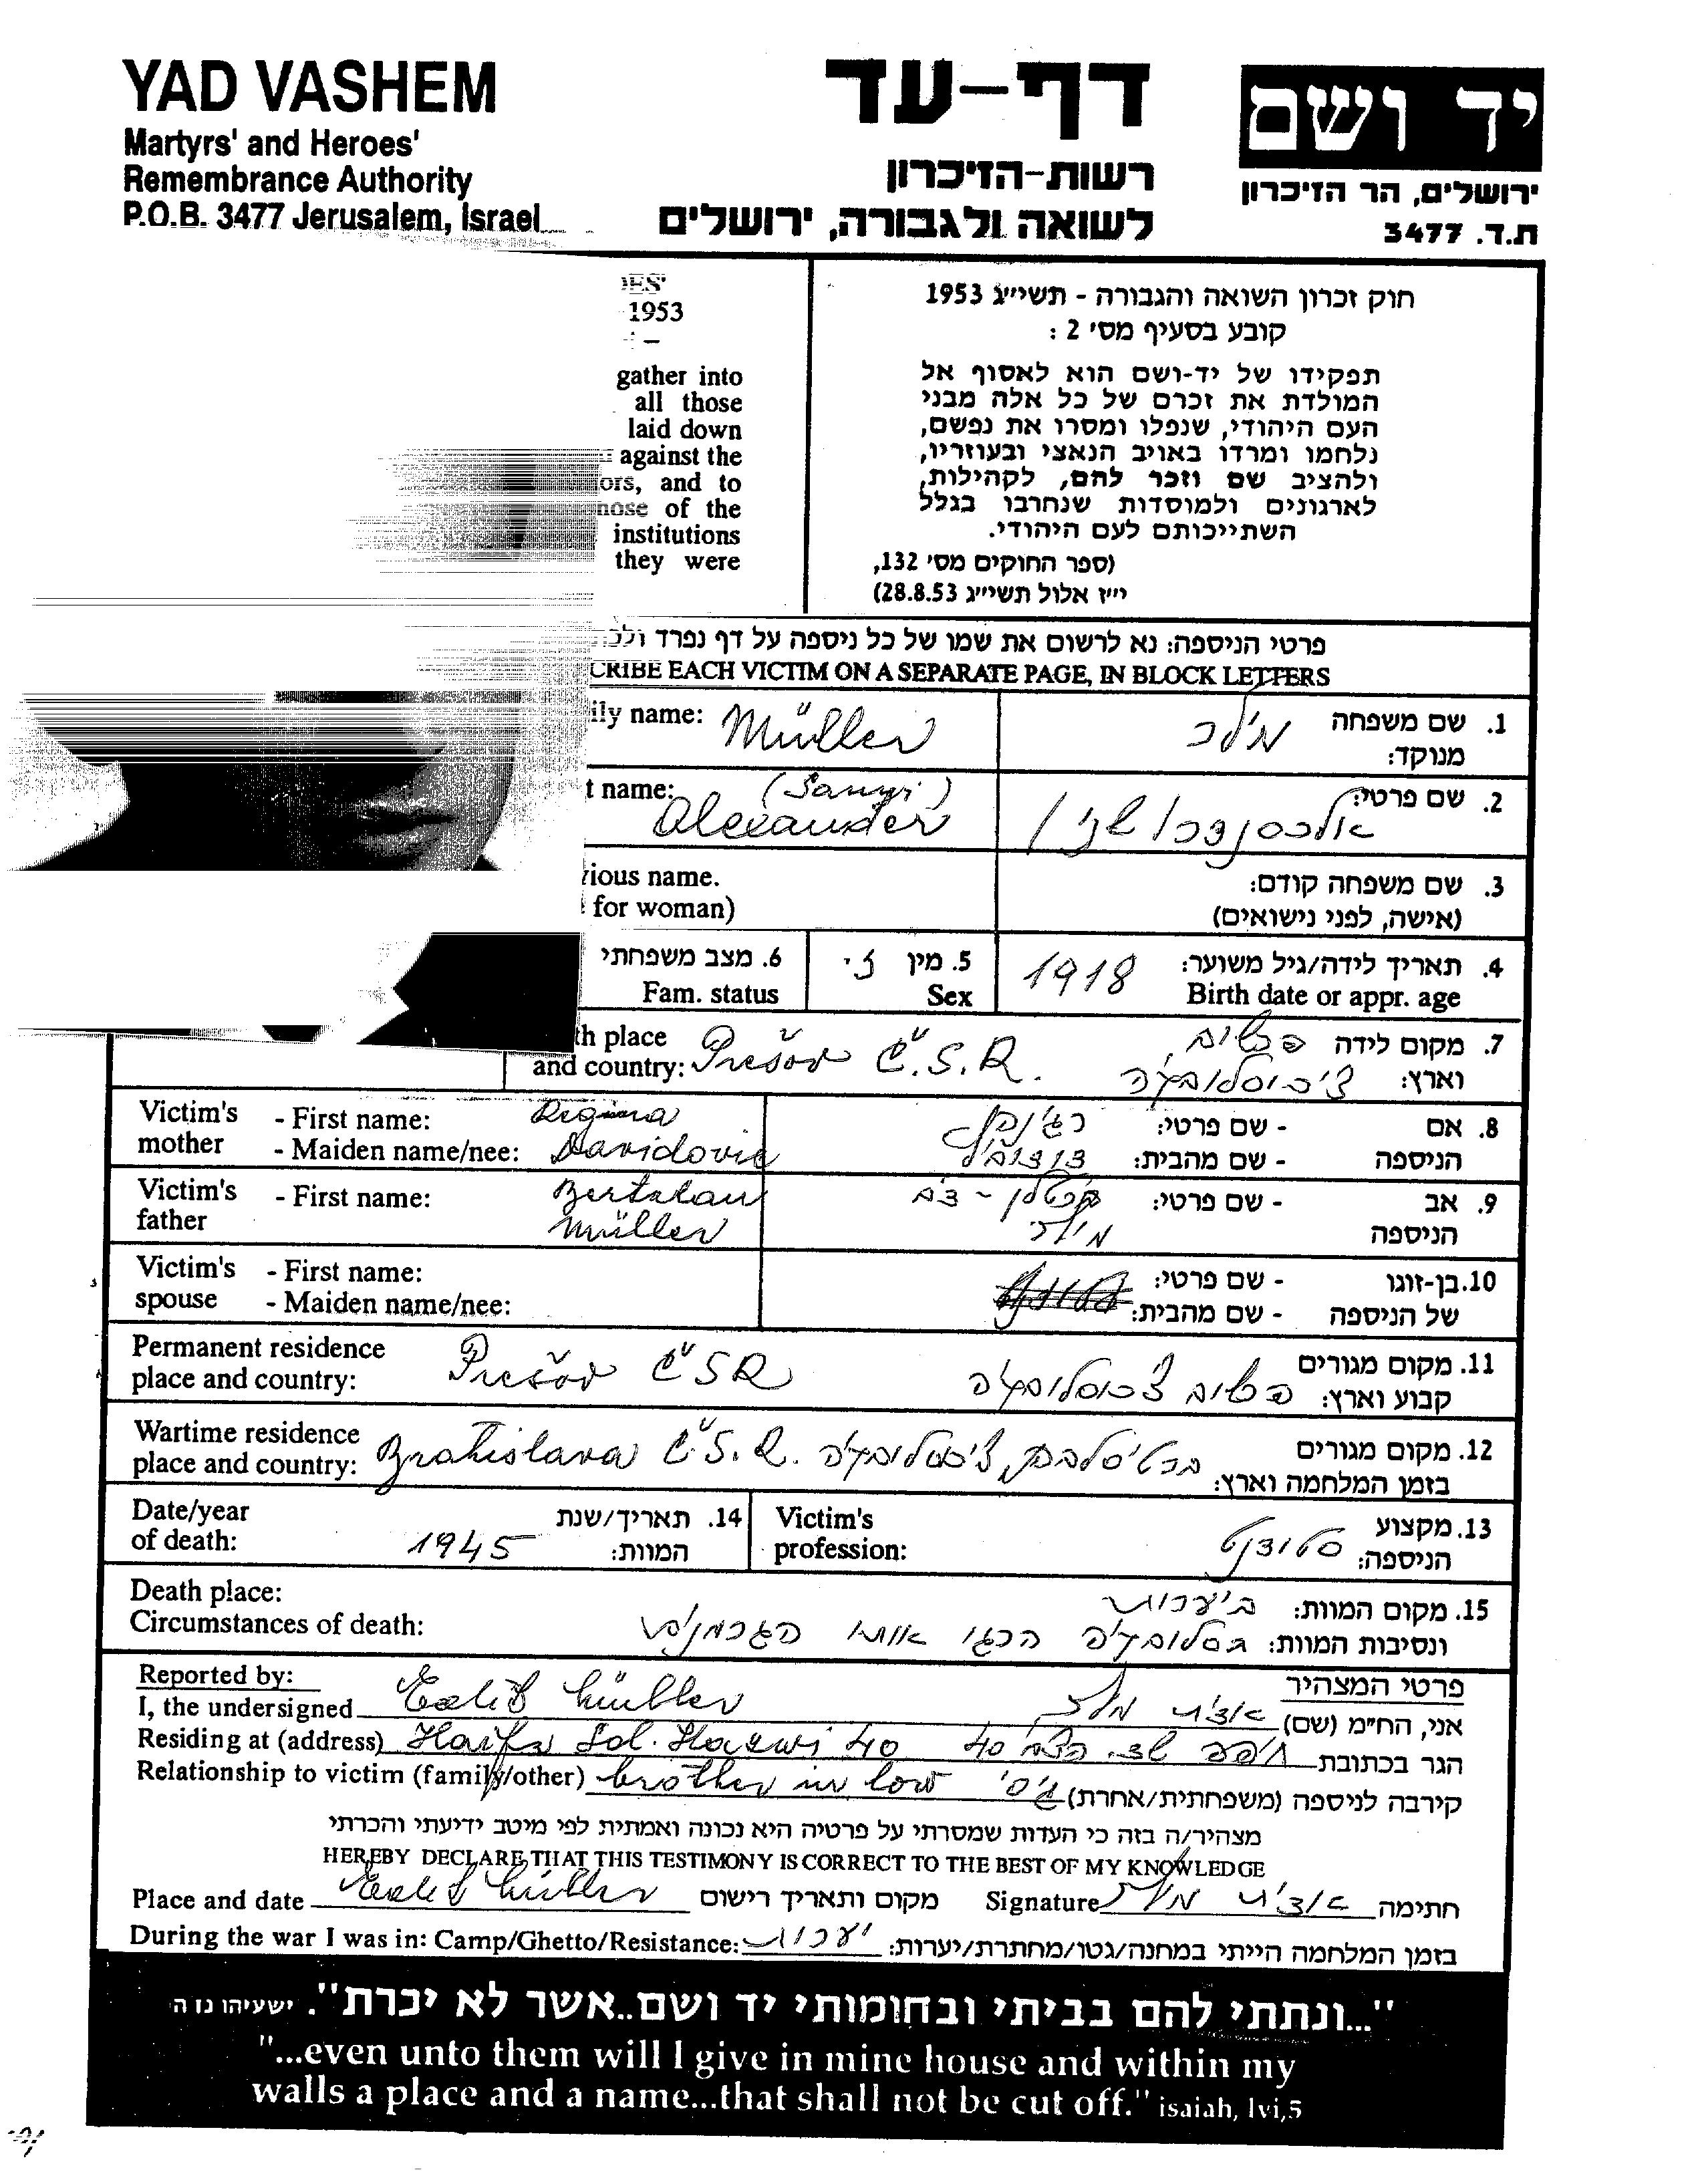 YAD VASHEM
Martyrs' and Heroes'
Remembrance Authority
P.O.B. 3477 Jerusalem, Israel
דף-עד
רשות-הזיכרון
לשואה ולגבורה, ירושלים
יד ושם
ירושלים, הר הזיכרון
ת.ד. 3477
1953
gather into
all those
laid down
against the
ors, and to
of the
institutions
they were
חוק זכרון השואה והגבורה - תשי״ג 1953
קובע בסעיף מס׳ 2 :
תפקידו של יד-ושם הוא לאסוף אל
המולדת את זכרם של כל אלה מבני
העם היהודי, שנפלו ומסרו את נפשם,
נלחמו ומרדו באויב הנאצי ובעוזריו,
ולהציב שם וזכר להם, לקהילות,
לארגונים ולמוסדות שנחרבו בגלל
השתייכותם לעם היהודי.
(ספר החוקים מס׳ 132,
י״ז אלול תשי״ג 28.8.53)
פרטי הניספה: נא לרשום את שמו של כל ניספה על דף נפרד
CRIBE EACH VICTIM ON A SEPARATE PAGE, IN BLOCK LETTERS
ily name: Müller
1. שם משפחה מנוקד: מילר
t name: (Sanyi)
Alexander
2. שם פרטי: אלכסנדר / שני /
vious name.
for woman)
3. שם משפחה קודם:
(אישה, לפני נישואים)
6. מצב משפחתי
Fam. status
5. מין ז.
Sex
4. תאריך לידה/גיל משוער: 1918
Birth date or appr. age
th place
and country: Prešov Č.S.R.
7. מקום לידה פרשוב,
וארץ: צ׳כוסלובקיה
Victim's mother - First name: Regina
- Maiden name/nee: Davidovic
8. אם - שם פרטי:
הניספה - שם מהבית:
Victim's father - First name: Bertalan
Müller
9. אב - שם פרטי:
הניספה מילר
Victim's spouse - First name:
- Maiden name/nee:
10. בן-זוגו - שם פרטי:
של הניספה - שם מהבית:
Permanent residence
place and country: Prešov ČSR
11. מקום מגורים
קבוע וארץ: פרשוב צ׳כוסלובקיה
Wartime residence
place and country: Bratislava Č.S.R.
12. מקום מגורים
בזמן המלחמה וארץ: ברטיסלבה, צ׳כוסלובקיה
Date/year
of death: 1945
14. תאריך/שנת
המוות:
Victim's
profession:
13. מקצוע
הניספה: סטודנט
Death place:
Circumstances of death:
15. מקום המוות: ביערות
ונסיבות המוות: בסלובקיה הרגו אותו הגרמנים
Reported by:
פרטי המצהיר
I, the undersigned Edit Müller
אני, הח״מ (שם) אדית מילר
Residing at (address) Haifa 40
הגר בכתובת חיפה 40
Relationship to victim (family/other) brother in low
קירבה לניספה (משפחתית/אחרת) גיס
מצהיר/ה בזה כי העדות שמסרתי על פרטיה היא נכונה ואמתית לפי מיטב ידיעתי והכרתי
HEREBY DECLARE THAT THIS TESTIMONY IS CORRECT TO THE BEST OF MY KNOWLEDGE
Place and date Edit Müller מקום ותאריך רישום
Signature אדית מילר חתימה
During the war I was in: Camp/Ghetto/Resistance: יערות
בזמן המלחמה הייתי במחנה/גטו/מחתרת/יערות:
"...ונתתי להם בביתי ובחומותי יד ושם..אשר לא יכרת". ישעיהו נו ה
"...even unto them will I give in mine house and within my
walls a place and a name...that shall not be cut off." isaiah, lvi,5